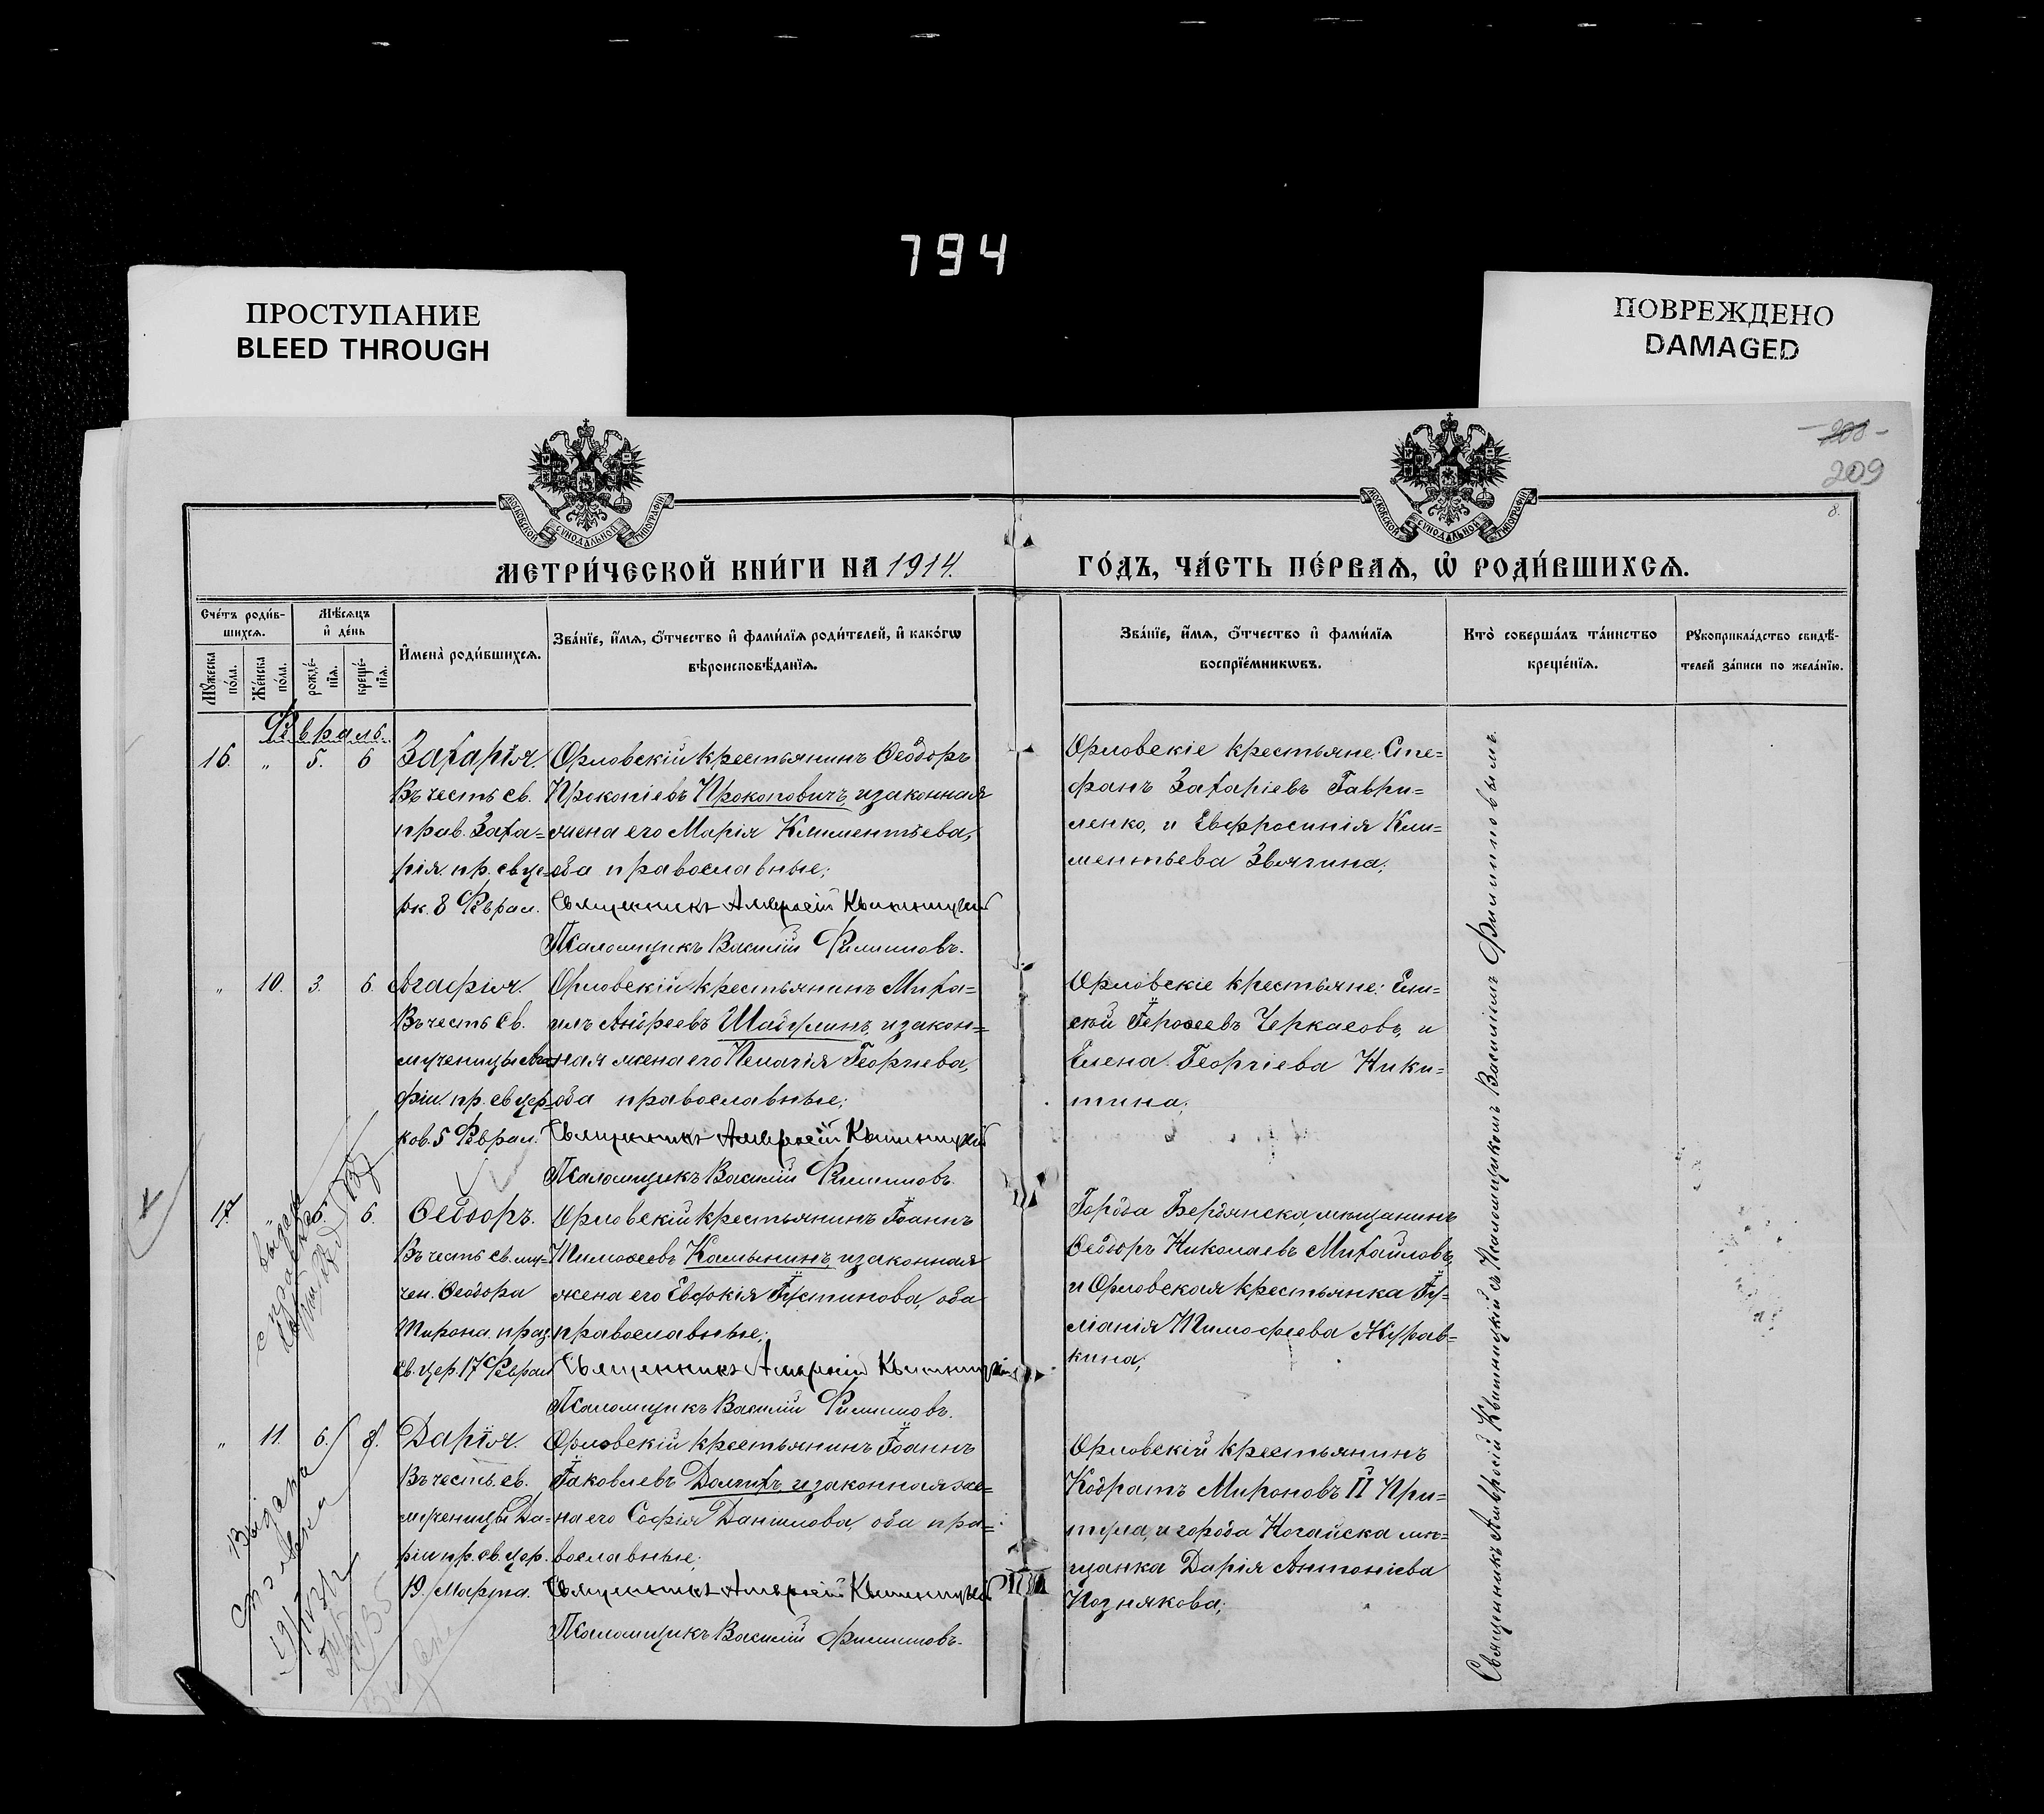 794
ПРОСТУПАНИЕ
BLEED THROUGH
ПОВРЕЖДЕНО
DAMAGED
208
209
8.
МОСКОВСКОЙ СѴНОДАЛЬНОЙ ТИПОГРАФІИ
МОСКОВСКОЙ СѴНОДАЛЬНОЙ ТИПОГРАФІИ
МЕТРИ́ЧЕСКОЙ КНИ́ГИ НА 1914.
ГО́ДЪ, ЧА́СТЬ ПЕ́РВАѦ, Ѡ҆ РОДИ́ВШИХСѦ.
Сче́тъ роди́в-
шихсѧ.
Мѣ́сѧцъ
и҆ де́нь
Мꙋ́жеска
по́ла.
Же́нска
по́ла.
рожде́-
нїѧ.
креще́-
нїѧ.
И҆мена̀ роди́вшихсѧ.
Зва́нїе, и҆́мѧ, ѻ҆́тчество и҆ фами́лїѧ роди́телей, и҆ како́гѡ
вѣроисповѣ́данїѧ.
Зва́нїе, и҆́мѧ, ѻ҆́тчество и҆ фами́лїѧ
воспрїе́мникѡвъ.
Кто̀ соверша́лъ та́инство
креще́нїѧ.
Рꙋкоприкла́дство свидѣ́-
телей за́писи по жела́нїю.
Февраль.
16. „ 5. 6
Захарія
Въ честь св.
прав. Заха-
рія. пр. св. це-
рк. 8 Феврал.
Орловскій крестьянинъ Ѳеодоръ
Прокопіевъ Прокоповичъ, и законная
жена его Марія Климентьева,
оба православные;
Священникъ Амвросій Квитницкій
Псаломщикъ Василій Филипповъ.
Орловскіе крестьяне: Сте-
фанъ Захаріевъ Гаври-
ленко, и Евфросинія Кли-
ментьева Звягина;
„ 10. 3. 6.
Агафія.
Въ честь св.
мученицы Ага-
фіи. пр. св. цер-
ков. 5 Феврал.
Орловскій крестьянинъ Миха-
илъ Андреевъ Шабулинъ, и закон-
ная жена его Пелагія Георгіева,
оба православные;
Священникъ Амвросій Квитницкій
Псаломщикъ Василій Филипповъ.
Орловскіе крестьяне: Ели-
сей Іероѳеевъ Черкасовъ, и
Елена Георгіева Ники-
тина;
17. „ 5. 6.
Ѳеодоръ.
Въ честь св. му-
чен. Ѳеодора
Тирона. праз.
св. цер. 17 Феврал
Орловскій крестьянинъ Іоаннъ
Тимоѳеевъ Калынинъ, и законная
жена его Евдокія Іустинова, оба
православные;
Священникъ Амвросій Квитницкій
Псаломщикъ Василій Филипповъ.
Города Бердянска, мѣщанинъ
Ѳеодоръ Николаевъ Михайловъ,
и Орловская крестьянка Іу-
ліанія Тимофеева Журав-
кина;
„ 11. 6. 8.
Дарія.
Въ честь. св.
мученицы Да-
ріи пр. св. цер.
19. Марта.
Орловскій крестьянинъ Іоаннъ
Іаковлевъ Долгихъ, и законная же-
на его Софія Даниилова, оба пра-
вославные;
Священникъ Амвросій Квитницкій
Псаломщикъ Василій Филипповъ.
Орловскій крестьянинъ
Кодратъ Мироновъ II При-
тула, и города Ногайска мѣ-
щанка Дарія Антоніева
Позднякова;
Священникъ Амвросій Квитницкій съ Псаломщикомъ Василіемъ Филипповымъ.
Выдана
справка
Выдана